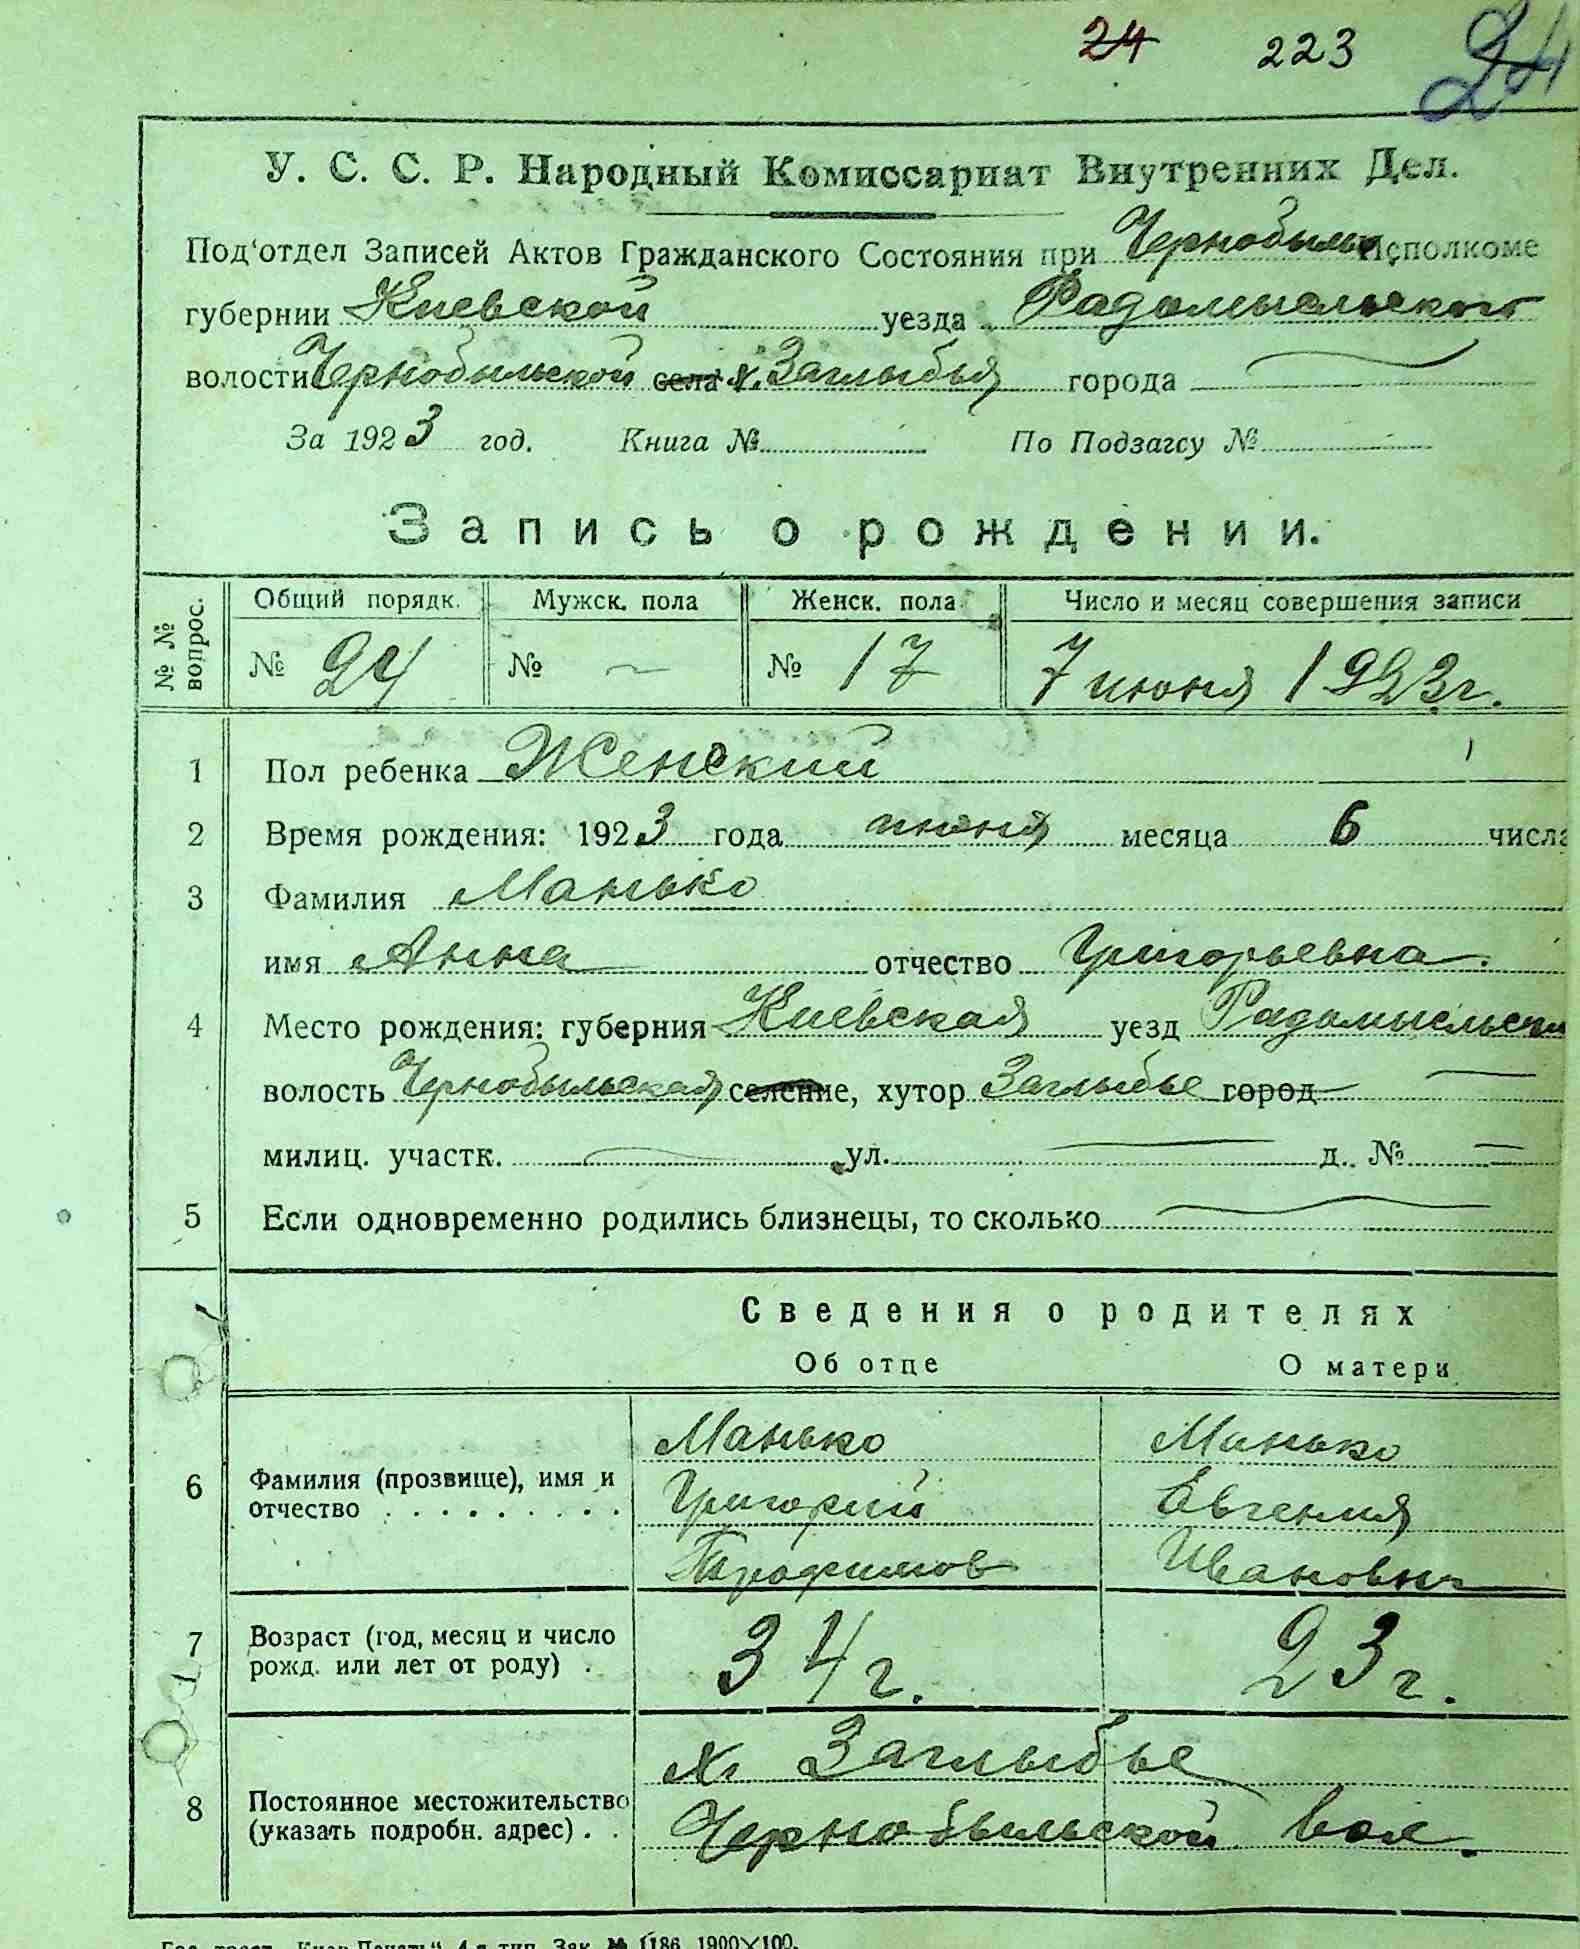 24 223 24
У. С. С. Р. Народный Комиссариат Внутренних Дел.
Под'отдел Записей Актов Гражданского Состояния при Чернобыльск Исполкоме
губернии Киевской уезда Радомысльского
волости Чернобыльской села х. Заглыбья города —
За 1923 год. Книга № По Подзагсу №
Запись о рождении.
№ № вопрос.
Общий порядк. Мужск. пола Женск. пола Число и месяц совершения записи
№ 24 № — № 17 7 июня 1923 г.
1 Пол ребенка Женский
2 Время рождения: 1923 года июня месяца 6 числа
3 Фамилия Манько
имя Анна отчество Григорьевна.
4 Место рождения: губерния Киевская уезд Радомысльски
волость Чернобыльская селение, хутор Заглыбье город —
милиц. участк. — ул. — д. № —
5 Если одновременно родились близнецы, то сколько —
Сведения о родителях
Об отце О матери
Манько Манько
6 Фамилия (прозвище), имя и Григорий Евгения
отчество . . . . . . . . . Трофимов Ивановн
7 Возраст (год, месяц и число 34 г. 23 г.
рожд. или лет от роду) .
х. Заглыбье
8 Постоянное местожительство Чернобыльской вол.
(указать подробн. адрес) . .
Гос. трест „Киев-Печать“ 4-я тип. Зак. № 1186 1900×100.